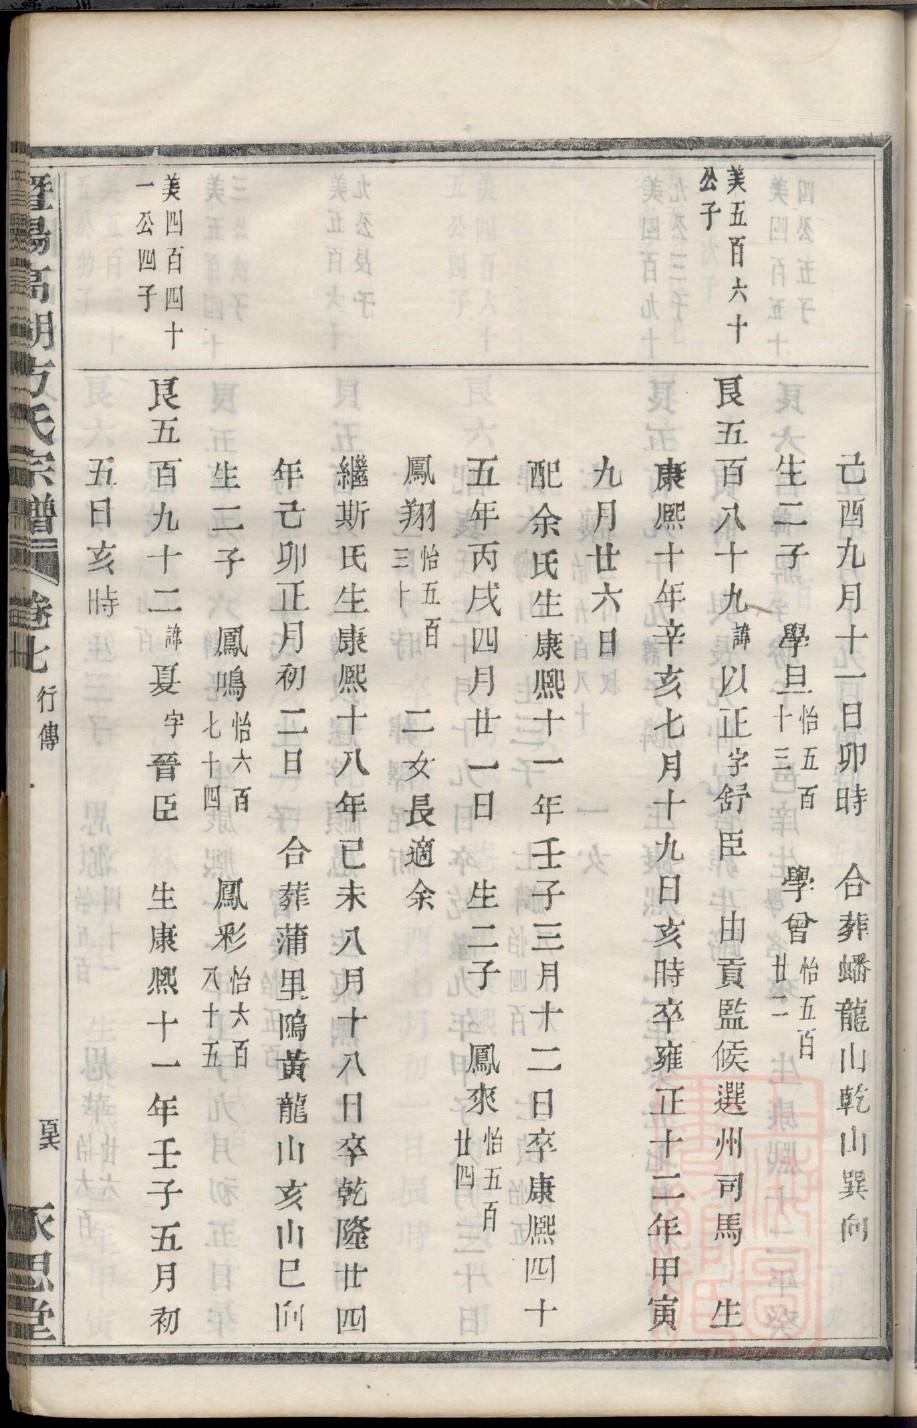 己酉九月十一日卯時　合葬蟠龍山乾山巽向
生二子　學旦怡五百十三　學曾怡五百廿二
美五百六十公子
艮五百八十九諱以正字舒臣　由貢監候選州司馬　生
康熙十年辛亥七月十九日亥時卒雍正十二年甲寅
九月廿六日
配余氏生康熙十一年壬子三月十二日卒康熙四十
五年丙戌四月廿一日　生二子　鳳來怡五百廿四
鳳翔怡五百三十　二女長適余
繼斯氏生康熙十八年己未八月十八日卒乾隆廿四
年己卯正月初二日　合葬蒲里隖黃龍山亥山巳向
生二子　鳳鳴怡六百七十四　鳳彩怡六百八十五
美四百四十一公四子
艮五百九十二諱夏字晉臣　生康熙十一年壬子五月初
五日亥時
暨陽高湖方氏宗譜　卷七　行傳　永思堂